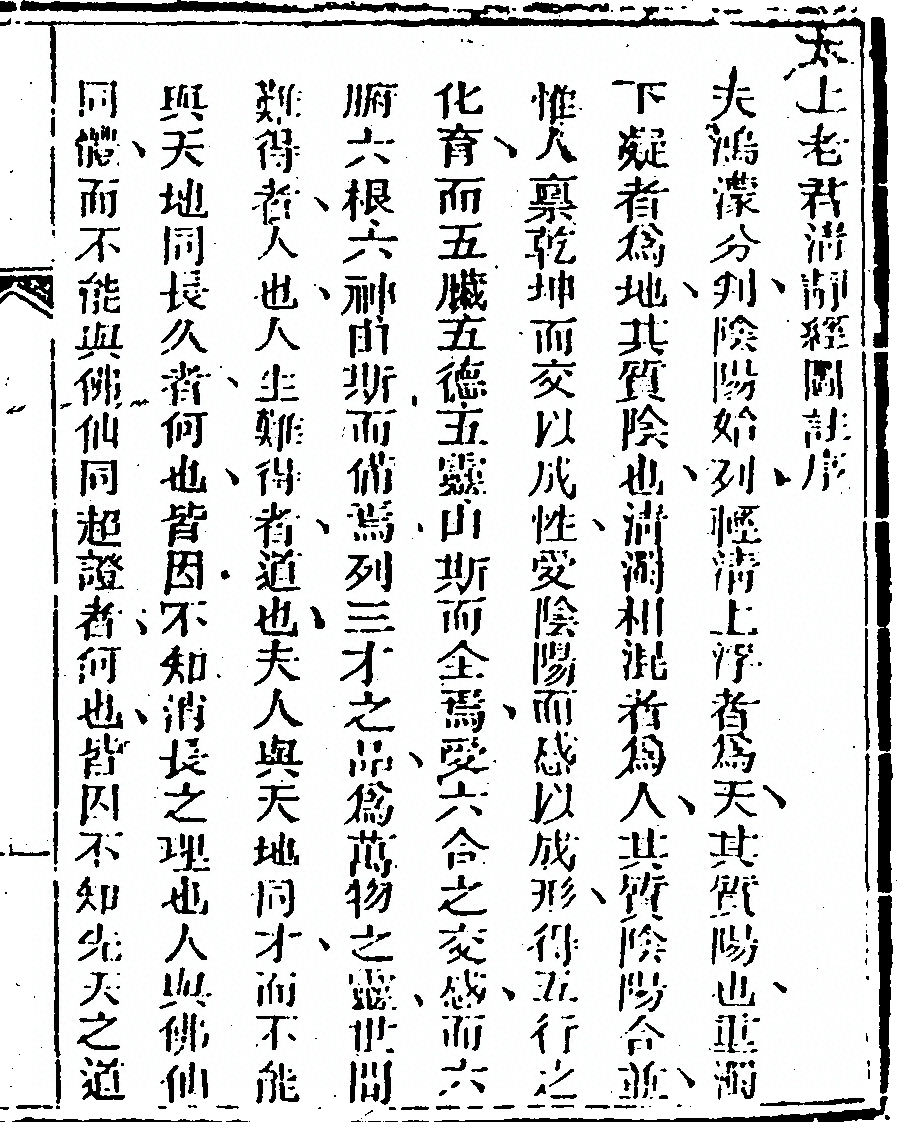 太上老君清靜經圖註序
夫鴻濛分判、陰陽始列、輕清上浮者爲天、其質陽也、重濁
下凝者爲地、其質陰也、清濁相混者爲人、其質陰陽合並、
惟人稟乾坤而交以成性、受陰陽而感以成形、得五行之
化育、而五臟五德五靈由斯而全焉、受六合之交感、而六
腑六根六神由斯而備焉、列三才之品、爲萬物之靈、世間
難得者、人也、人生難得者、道也、夫人與天地同才、而不能
與天地同長久者、何也、皆因不知消長之理也人與佛仙
同體、而不能與佛仙同超證者、何也、皆因不知先天之道